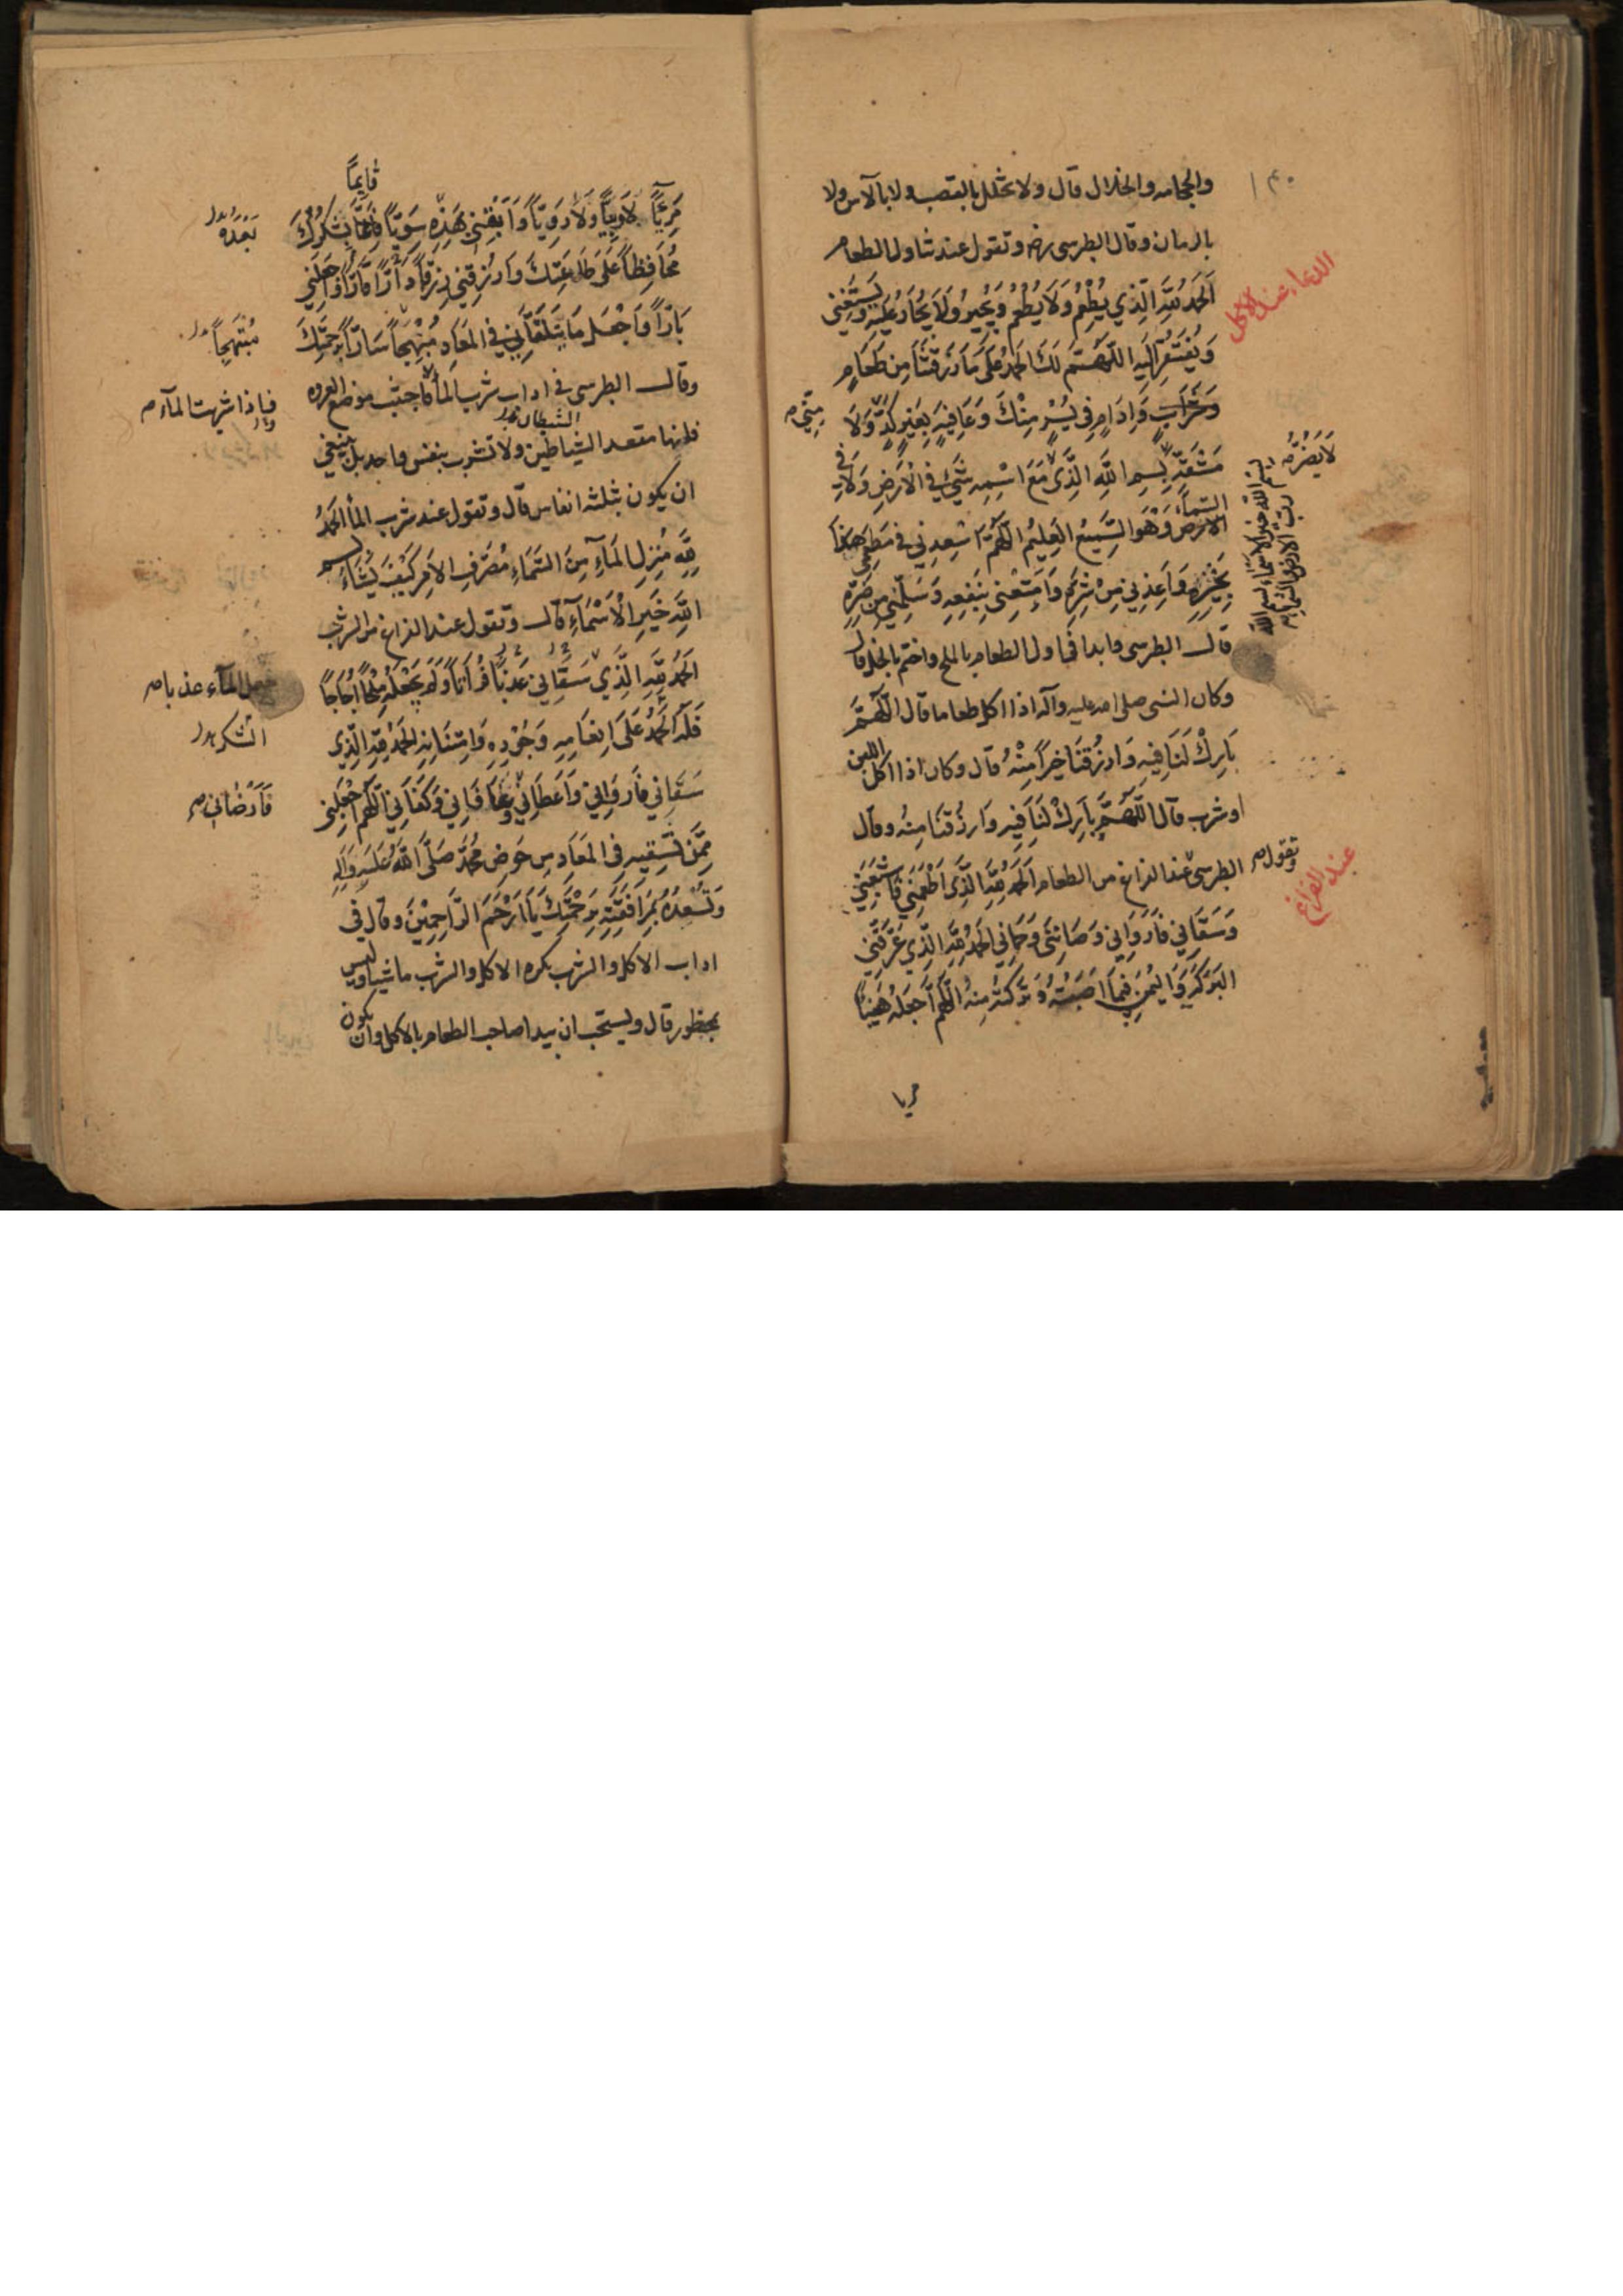 ١٤٠
والحجامه والخلال قال ولا تخلل بالقصب ولا بالآس ولا
بالرمان وقال الطبرسى ره وتقول عند تناول الطعام
الدعاء عند الاكل
اَلْحَمْدُ لِلّٰهِ الَّذي يُطْعِمُ وَلَا يُطْعَمُ وَيُجيرُ وَلَا يُجَارُ عَلَيْهِ وَيَسْتَغْني
وَيُفْتَقَرُ اِلَيْهِ اللّٰهُمَّ لَكَ الْحَمْدُ عَلَى مَا رَزَقْتَنَا مِنْ طَعَامٍ
وَشَرَابٍ وَاِدَامٍ فِى يُسْرٍ مِنْكَ وَعَافِيَةٍ بِغَيْرِ كَدٍّ وَلَا
مِنِّي
مَشَقَّةٍ بِسْمِ اللّٰهِ الَّذي مَعَ اسْمِهِ شَيْءٌ فِي الْاَرْضِ وَلَا فِي
لَا يَضُرُّ
بِسْمِ اللّٰهِ خَيْرِ الْاَسْمَاءِ بِسْمِ اللّٰهِ
رَبِّ الْاَرْضِ وَالسَّمَاءِ
السَّمَاء
الْاَرْض وَهُوَ السَّمِيعُ الْعَلِيمُ اللّٰهُمَّ اَسْعِدْنِي فِي مَطْعَمِي هٰذَا
بِخَيْرِهِ وَاَعِذْنِي مِنْ شَرِّهِ وَاَمْتِعْنِى بِنَفْعِهِ وَسَلِّمْنِي مِنْ ضَرِّهِ
قال الطبرسى وابدا فى اول الطعام بالملح واختم بالخل قال
وكان النبى صلى الله عليه وآله اذا اكل طعاما قال اللّٰهُمَّ
بَارِكْ لَنَا فِيهِ وَارْزُقْنَا خَيْراً مِنْهُ قال وكان اذا اكل اللبن
او شرب قال اللّٰهُمَّ بَارِكْ لَنَا فِيهِ وَارْزُقْنَا مِنْهُ وقال
وتقول
عند الفراغ
الطبرسى عند الفراغ من الطعام اَلْحَمْدُ لِلّٰهِ الَّذِي اَطْعَمَنِي فَاَشْبَعَنِي
وَسَقَانِي فَاَرْوَانِي وَصَانَنِي وَحَمَانِي اَلْحَمْدُ لِلّٰهِ الَّذِي عَرَّفَنِي
الْبَرَكَةَ وَالْيُمْنَ فِيمَا اَصَبْتُهُ وَتَرَكْتُهُ مِنْهُ اللّٰهُمَّ اجْعَلْهُ هَنِيئًا
مريا
قَايِماً
مَرِيئًا لَا وَبِيًّا وَلَا دَوِيًّا وَاَبْقِنِي بَعْدَهُ سَوِيًّا قَائِمًا بِشُكْرِكَ
بَعْدَهُ
مُحَافِظاً عَلَى طَاعَتِكَ وَارْزُقْنِي رِزْقاً دَارًّا قَارًّا وَاجْعَلْنِي
بَارّاً وَاجْعَلْ مَا يَتَلَقَّانِي فِي الْمَعَادِ مُبْهِجاً سَارّاً بِرَحْمَتِكَ
مُبْتَهِجاً
وقال الطبرسى فى اداب شرب الماء فاجتنب موضع العروه
فاذا شربت الماء
الشيطان
فانها مقعد الشياطين ولا تشرب بنفس واحد بل ينبغي
ان يكون بثلثه انفاس قال وتقول عند شرب الماء اَلْحَمْدُ
لِلّٰهِ مُنْزِلِ الْمَاءِ مِنَ السَّمَاءِ مُصَرِّفِ الْاَمْرِ كَيْفَ يَشَاءُ بِسْمِ
اللّٰهِ خَيْرِ الْاَسْمَآءِ قال وتقول عند الفراغ من الشرب
اَلْحَمْدُ لِلّٰهِ الَّذِي سَقَانِي عَذْباً فُرَاتاً وَلَمْ يَجْعَلْهُ مِلْحاً اُجَاجاً
المآء عذبا
فَلَهُ الْحَمْدُ عَلَى اِنْعَامِهِ وَجُودِهِ وَامْتِنَانِهِ اَلْحَمْدُ لِلّٰهِ الَّذِي
الشكر
سَقَانِي فَاَرْوَانِي وَاَعْطَانِي وَعَافَانِي وَكَفَانِي اللّٰهُمَّ اجْعَلْنِي
فَاَرْضَانِي
مِمَّنْ تَسْقِيهِ فِى الْمَعَادِ مِن حَوْضِ مُحَمَّدٍ صَلَّى اللّٰهُ عَلَيْهِ وَآلِهِ
وَتُسْعِدُهُ بِمُرَافَقَتِهِ بِرَحْمَتِكَ يَا اَرْحَمَ الرَّاحِمِيْنَ وقال فى
اداب الاكل والشرب يكره الاكل والشرب ماشيا وليس
بمحظور قال ويستحب ان يبدا صاحب الطعام بالاكل وان يكون